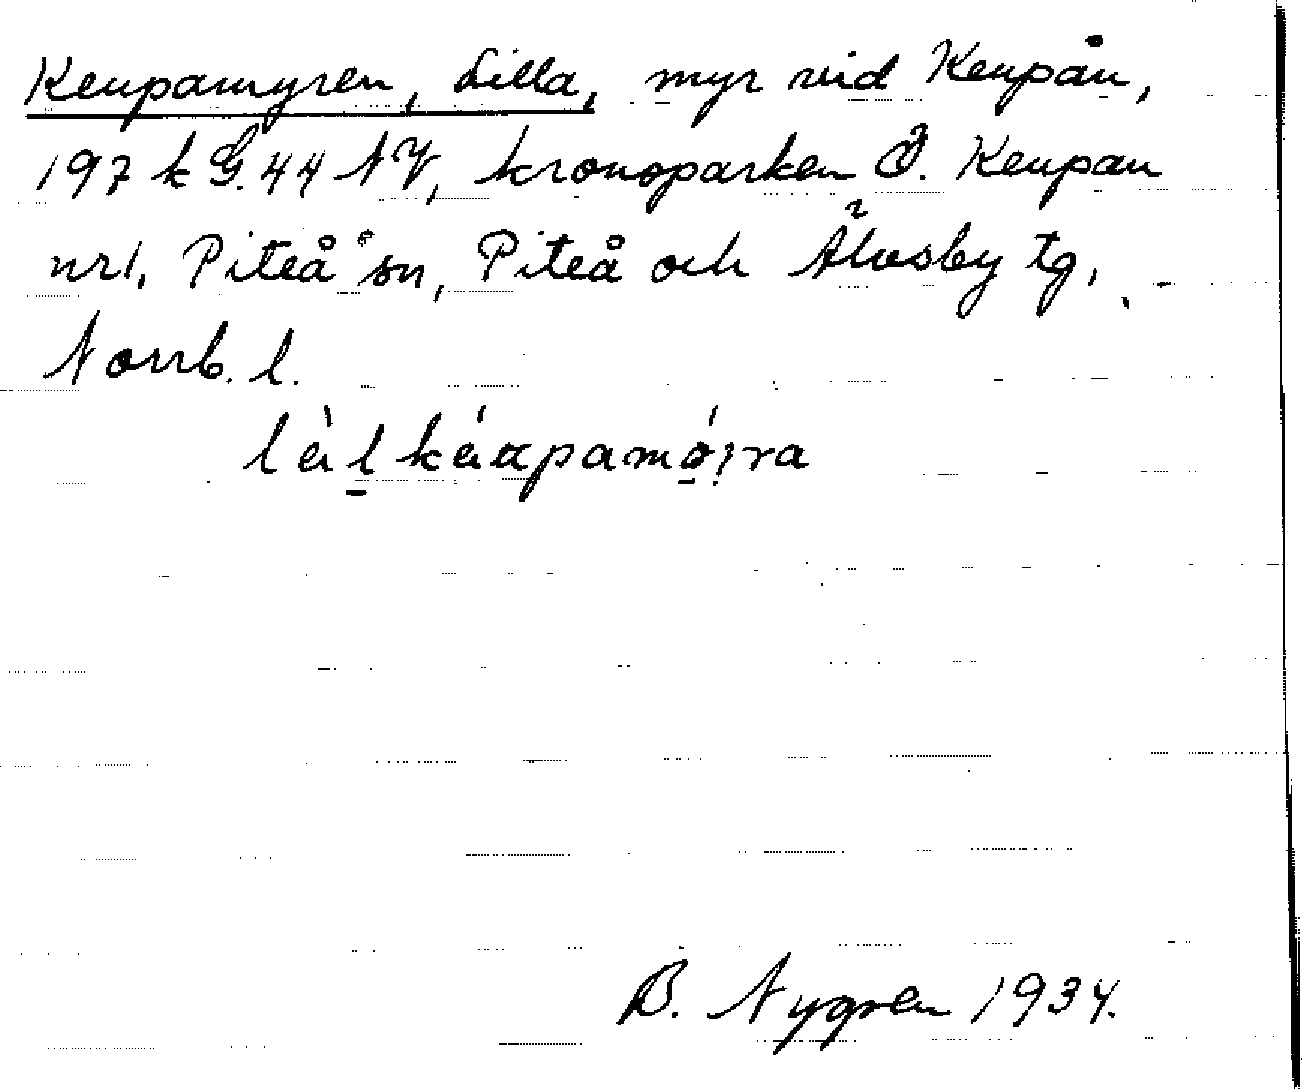 Keupamyren, Lilla, myr vid Keupån,
197 k G. 44 NV, kronoparken Ö. Keupån
nr 1, Piteå sn, Piteå och Älvsby tg,
Norrb. l.
B. Nygren 1934.